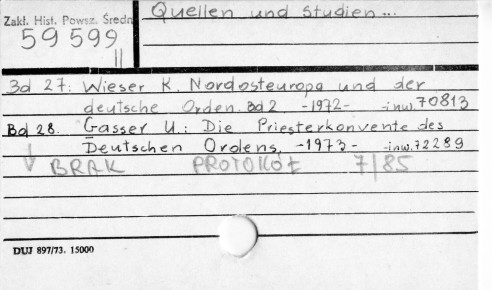 Zakł. Hist. Powsz. Średn
Quellen und Studien...
59 599
II
Bd 27: Wieser K. Nordosteuropa und der
deutsche Orden. Bd 2 -1972- -inw. 70813
Bd 28. Gasser U.: Die Priesterkonvente des
Deutschen Ordens. -1973- -inw. 72289
BRAK PROTOKÓŁ 7/85
DUJ 897/73. 15000